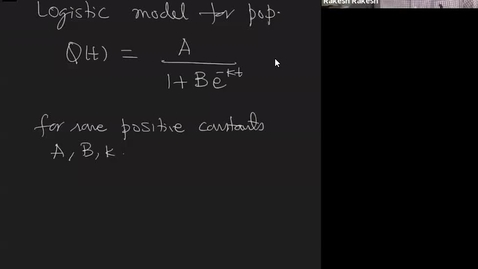 Logistic model for pop.
Rakesh Rakesh
Q(t) = A / (1 + Be^{-kt})
for some positive constants
A, B, k.